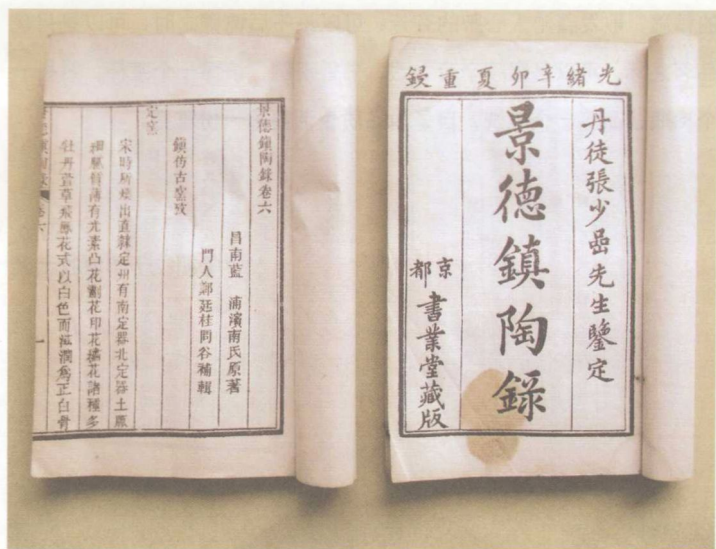 光緒辛卯夏重鋟
丹徒張少嵒先生鑒定
景德鎮陶錄
京都書業堂藏版
景德鎮陶錄卷六
昌南藍 浦濱南氏原著
門人鄭廷桂問谷補輯
鎮仿古窯攷
定窯
宋時所燒出直隸定州有南定器北定器土脈
細膩質薄有光素凸花劃花印花繡花諸種多
牡丹萱草飛鳳花式以白色而滋潤爲正白骨
卷六
一